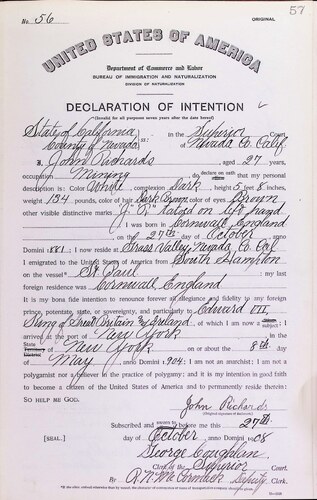 No. 56
ORIGINAL
57
UNITED STATES OF AMERICA
Department of Commerce and Labor
BUREAU OF IMMIGRATION AND NATURALIZATION
DIVISION OF NATURALIZATION
DECLARATION OF INTENTION
(Invalid for all purposes seven years after the date hereof)
State of California
County of Nevada ss: In the Superior Court
of Nevada Co. Calif.
I, John Richards, aged 27 years,
occupation Mining, do declare on oath that my personal
description is: Color White, complexion Dark, height 5 feet 8 inches,
weight 134 pounds, color of hair Dark Brown, color of eyes Brown
other visible distinctive marks "J. R." tatoo on left hand
I was born in Cornwall England
on the 27th day of October, anno
Domini 1881; I now reside at Grass Valley, Nevada Co. Cal
I emigrated to the United States of America from South Hampton
on the vessel* St Paul; my last
foreign residence was Cornwall England
It is my bona fide intention to renounce forever all allegiance and fidelity to any foreign
prince, potentate, state, or sovereignty, and particularly to Edward VII
King of Great Britain & Ireland, of which I am now a subject; I
arrived at the port of New York, in the
State of New York on or about the 8th day
of May, anno Domini 1904; I am not an anarchist; I am not a
polygamist nor a believer in the practice of polygamy; and it is my intention in good faith
to become a citizen of the United States of America and to permanently reside therein:
SO HELP ME GOD.
John Richards
(Original signature of declarant)
Subscribed and sworn to before me this 27th
[SEAL.] day of October, anno Domini 1908
George Coughlan
Clerk of the Superior Court.
By R. N. McCormack Deputy Clerk.